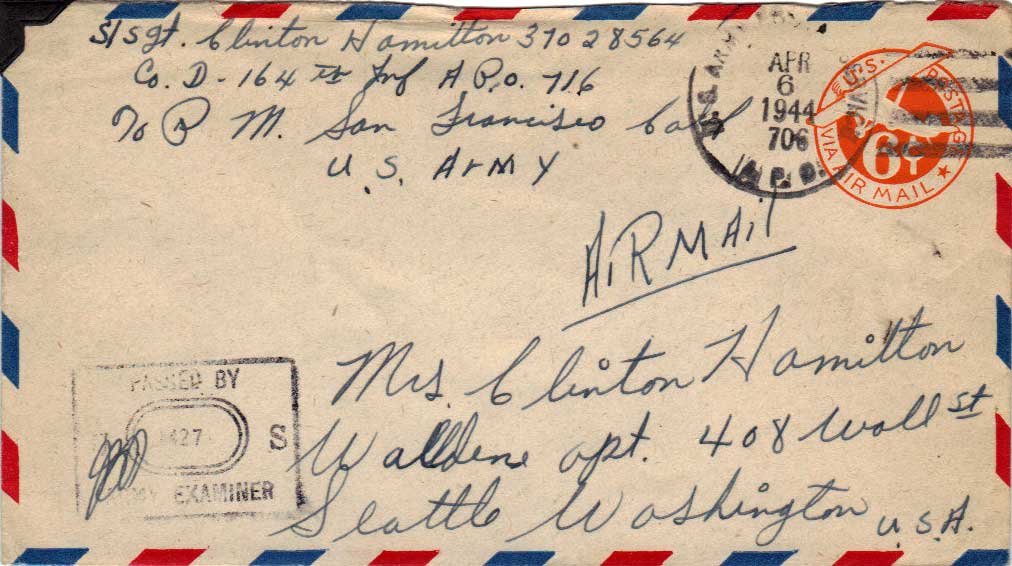 S/Sgt. Clinton Hamilton 37028564
Co. D - 164th Inf A.P.O. 716
To P. M. San Francisco Calif
U.S. ARMY
U.S. ARMY
APR
6
1944
706
A.P.O.
U.S. POSTAGE
6¢
VIA AIR MAIL
AIRMAIL
Mrs. Clinton Hamilton
Waldene apt. 408 Wall st
Seattle Washington U.S.A.
PASSED BY
S
ARMY EXAMINER